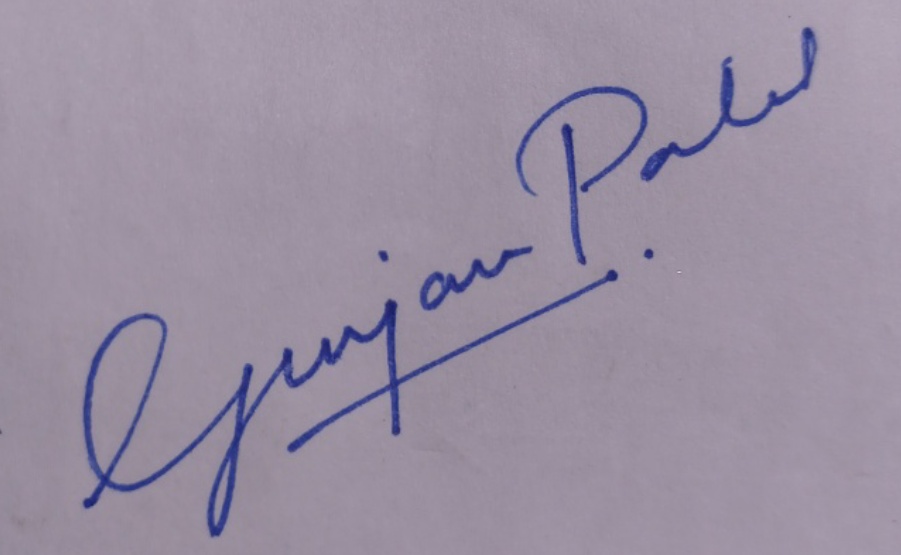 Gunjan Patel